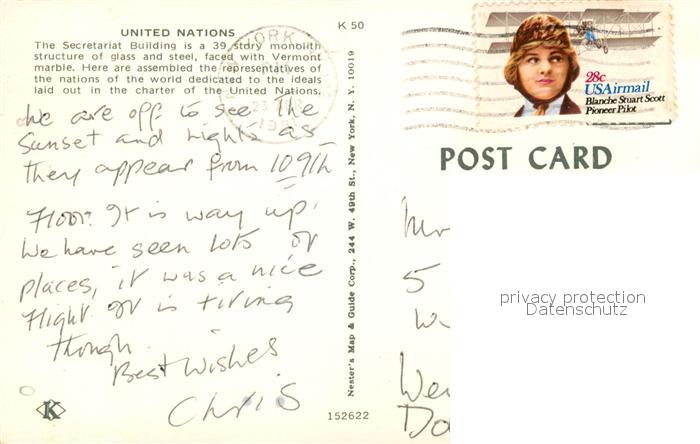 UNITED NATIONS
K 50
The Secretariat Building is a 39 story monolith
structure of glass and steel, faced with Vermont
marble. Here are assembled the representatives of
the nations of the world dedicated to the ideals
laid out in the charter of the United Nations.
We are off to see The
Sunset and Lights as
they appear from 109th
Floor. It is way up.
We have seen lots of
places, it was a nice
flight It is tiring
though.
Best Wishes
Chris
K
152622
Nester's Map & Guide Corp., 244 W. 49th St., New York, N. Y. 10019
YORK
23
28c
USAirmail
Blanche Stuart Scott
Pioneer Pilot
POST CARD
Mr
5
privacy protection
Datenschutz